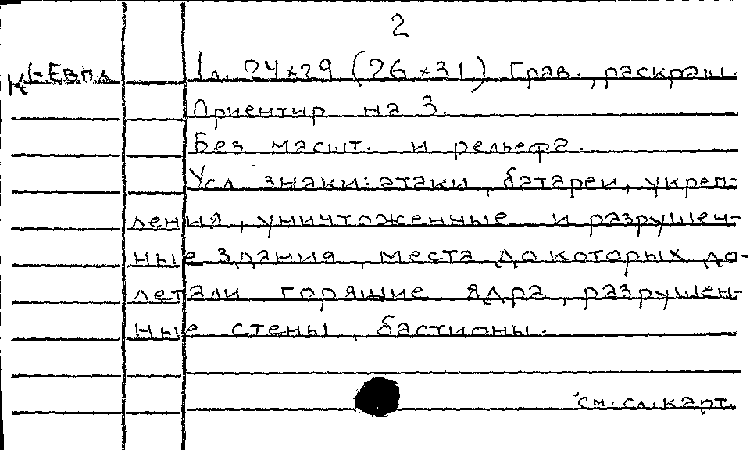 2
К-Евпл 1 л. 24×29 (26×31) Грав., раскраш.
Ориентир на З.
Без масшт. и рельефа.
Усл. знаки: атаки, батареи, укреп-
ления, уничтоженные и разрушен-
ные здания, места до которых до-
летали горящие ядра, разрушен-
ные стены, бастионы.
см. сл. карт.